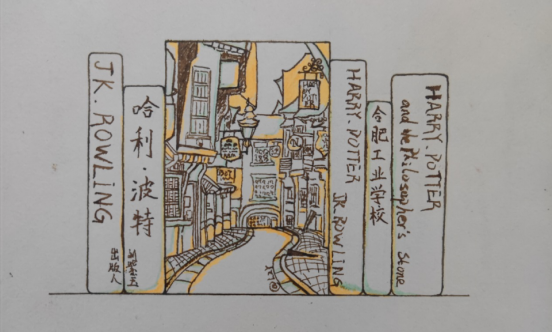 JK. ROWLING
哈利·波特
出版人
HARRY. POTTER JK.ROWLING
合肥工业
HARRY. POTTER
and the Philosopher's Stone